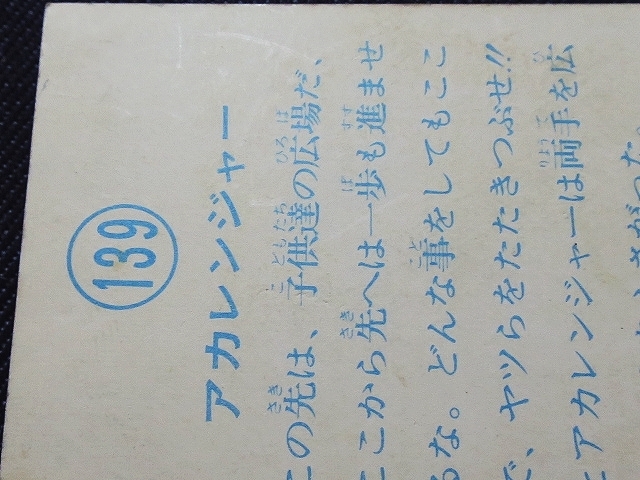 139
アカレンジャー
この先は、子供達の広場だ、
ここから先へは一歩も進ませ
るな。どんな事をしてもここ
で、ヤツらをたたきつぶせ!!
とアカレンジャーは両手を広
さがった。